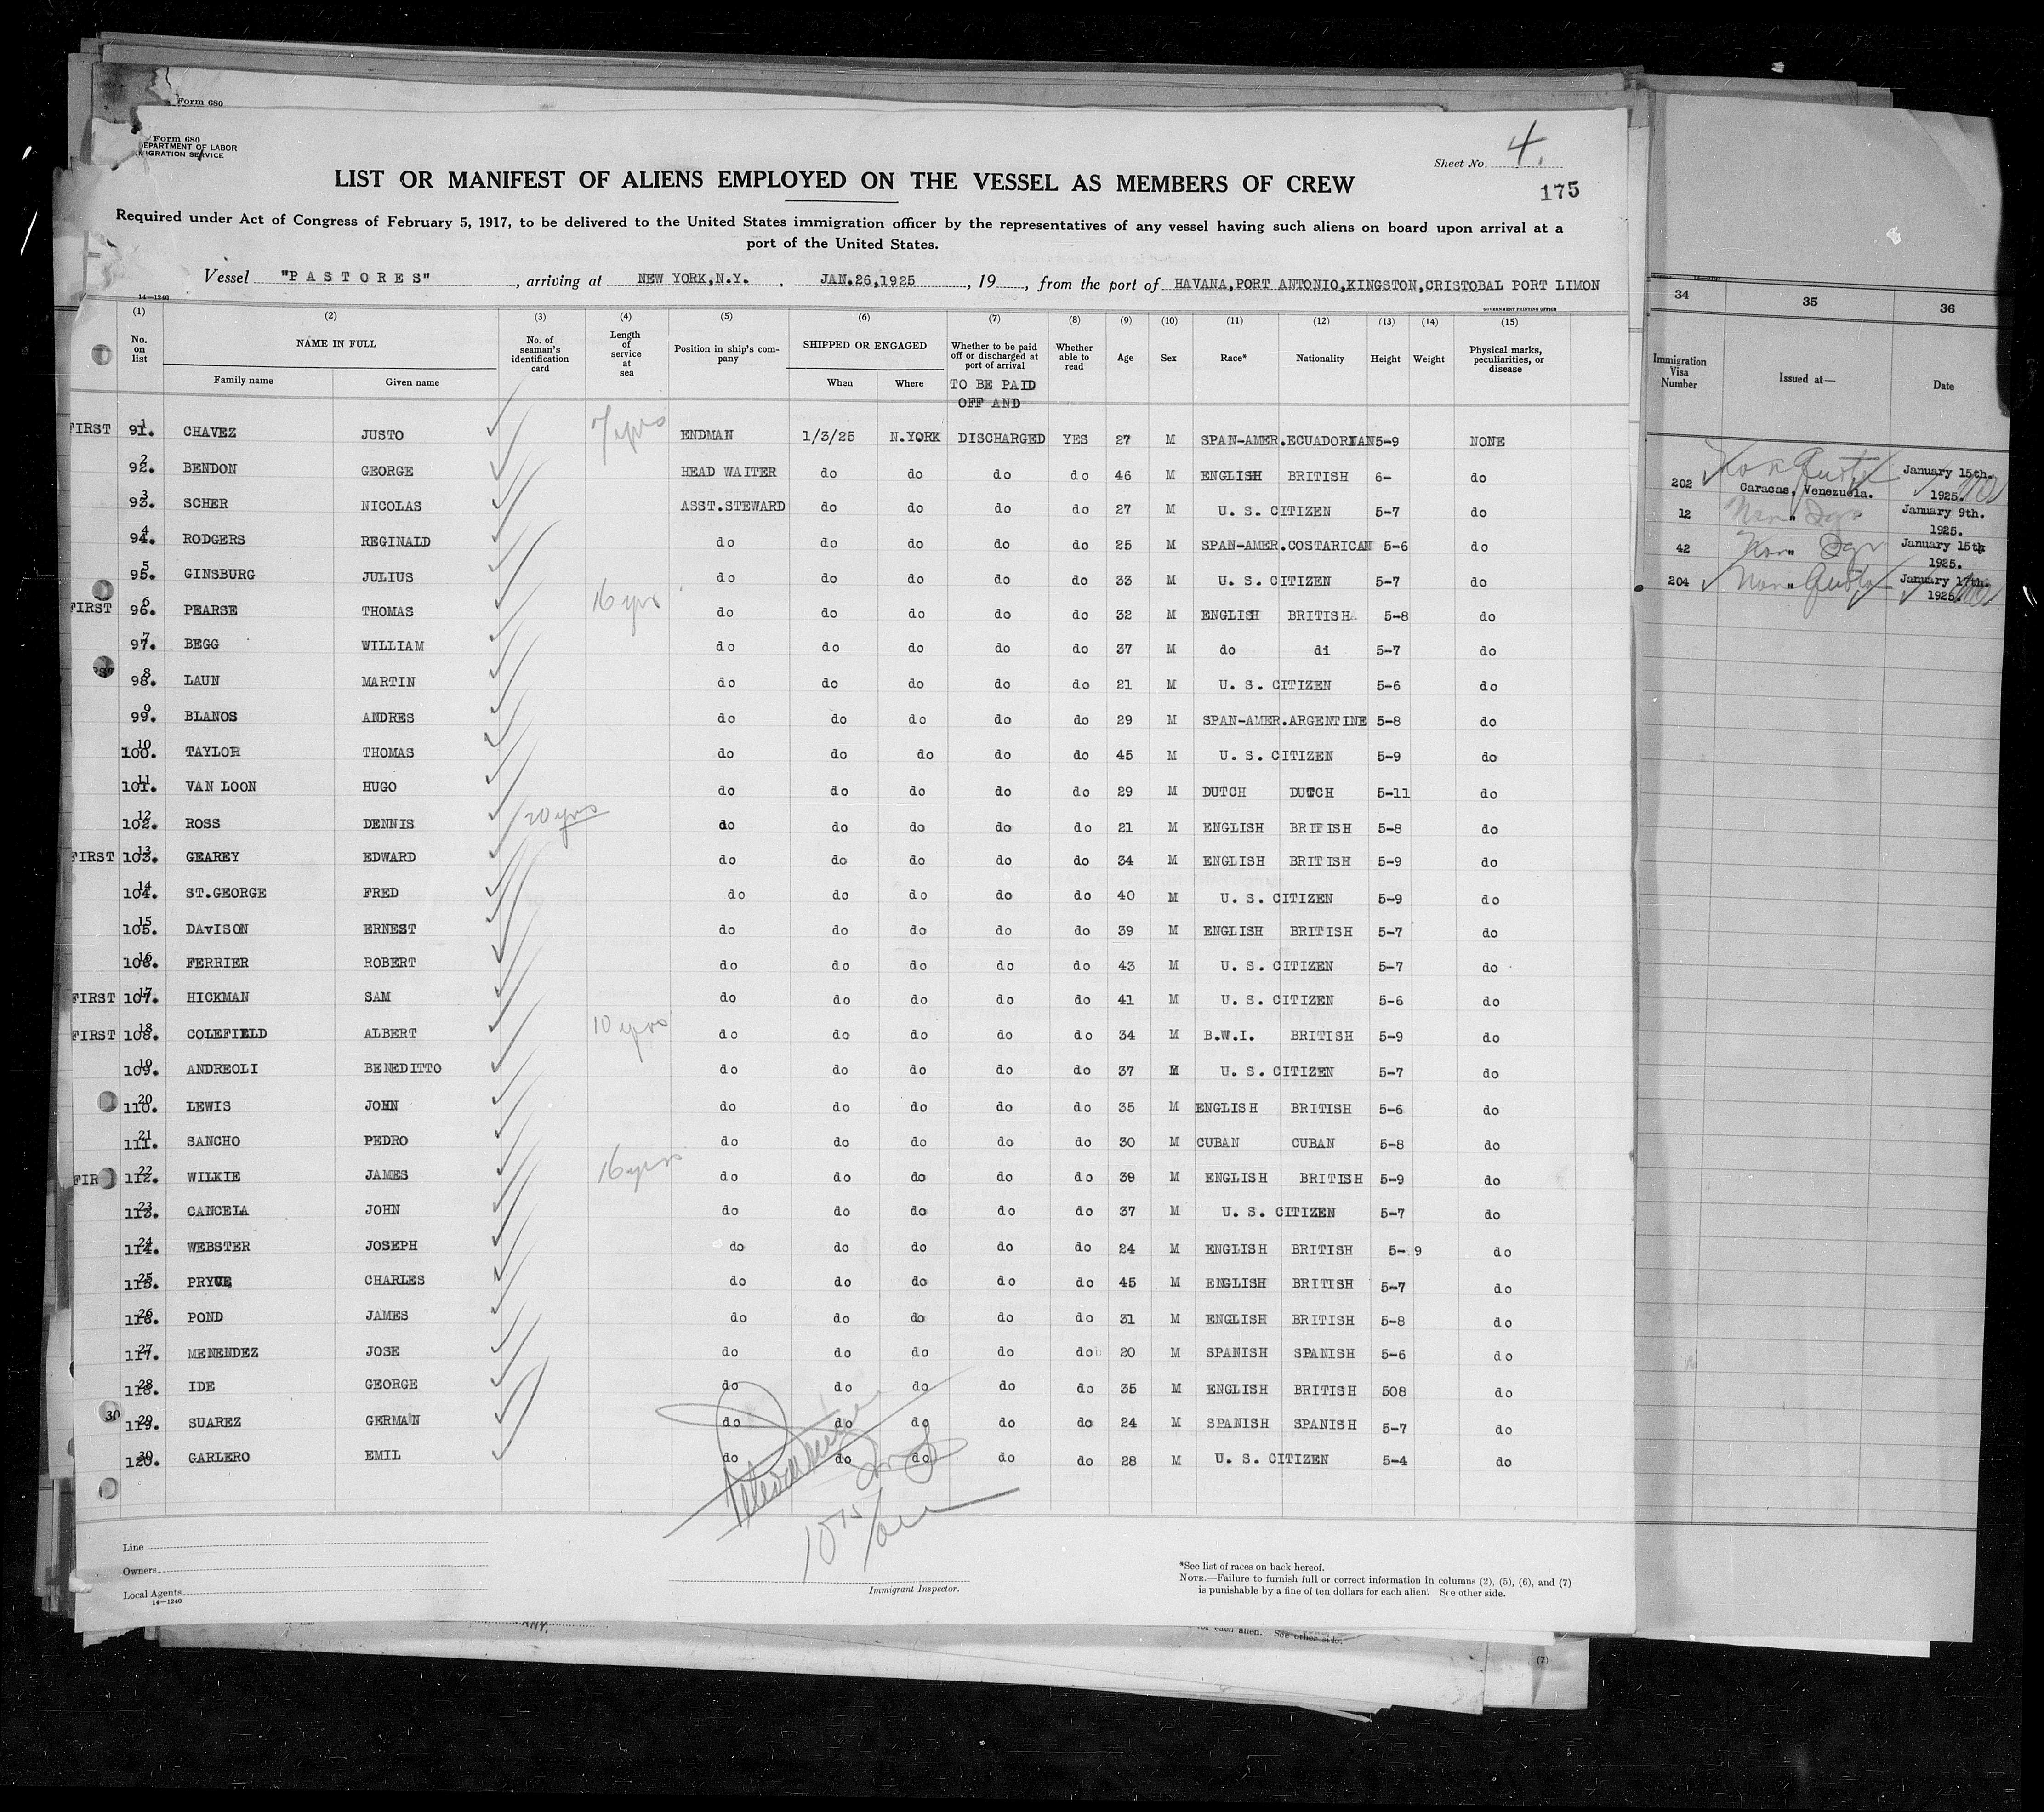 Form 680
Form 680
DEPARTMENT OF LABOR
IMMIGRATION SERVICE
Sheet No. 4.
175
LIST OR MANIFEST OF ALIENS EMPLOYED ON THE VESSEL AS MEMBERS OF CREW
Required under Act of Congress of February 5, 1917, to be delivered to the United States immigration officer by the representatives of any vessel having such aliens on board upon arrival at a
port of the United States.
Vessel "PASTORES", arriving at NEW YORK,N.Y. , JAN.26,1925, 19 , from the port of HAVANA,PORT ANTONIO,KINGSTON,CRISTOBAL PORT LIMON
14—1240
GOVERNMENT PRINTING OFFICE
(1) (2) (3) (4) (5) (6) (7) (8) (9) (10) (11) (12) (13) (14) (15)
No. on list NAME IN FULL Family name Given name No. of seaman's identification card Length of service at sea Position in ship's company SHIPPED OR ENGAGED When Where Whether to be paid off or discharged at port of arrival Whether able to read Age Sex Race* Nationality Height Weight Physical marks, peculiarities, or disease
TO BE PAID
OFF AND
FIRST 91. 1 CHAVEZ JUSTO 7 yrs ENDMAN 1/3/25 N.YORK DISCHARGED YES 27 M SPAN-AMER. ECUADORIAN 5-9 NONE
92. 2 BENDON GEORGE HEAD WAITER do do do do 46 M ENGLISH BRITISH 6- do
93. 3 SCHER NICOLAS ASST.STEWARD do do do do 27 M U. S. CITIZEN 5-7 do
94. 4 RODGERS REGINALD do do do do do 25 M SPAN-AMER. COSTARICAN 5-6 do
95. 5 GINSBURG JULIUS do do do do do 33 M U. S. CITIZEN 5-7 do
FIRST 96. 6 PEARSE THOMAS 16 yrs do do do do do 32 M ENGLISH BRITISH 5-8 do
97. 7 BEGG WILLIAM do do do do do 37 M do di 5-7 do
98. 8 LAUN MARTIN do do do do do 21 M U. S. CITIZEN 5-6 do
99. 9 BLANOS ANDRES do do do do do 29 M SPAN-AMER. ARGENTINE 5-8 do
100. 10 TAYLOR THOMAS do do do do do 45 M U. S. CITIZEN 5-9 do
101. 11 VAN LOON HUGO do do do do do 29 M DUTCH DUTCH 5-11 do
102. 12 ROSS DENNIS 20 yrs do do do do do 21 M ENGLISH BRITISH 5-8 do
FIRST 103. 13 GEAREY EDWARD do do do do do 34 M ENGLISH BRITISH 5-9 do
104. 14 ST.GEORGE FRED do do do do do 40 M U. S. CITIZEN 5-9 do
105. 15 DAvISON ERNEST do do do do do 39 M ENGLISH BRITISH 5-7 do
106. 16 FERRIER ROBERT do do do do do 43 M U. S. CITIZEN 5-7 do
FIRST 107. 17 HICKMAN SAM do do do do do 41 M U. S. CITIZEN 5-6 do
FIRST 108. 18 COLEFIELD ALBERT 10 yrs do do do do do 34 M B.W.I. BRITISH 5-9 do
109. 19 ANDREOLI BENEDITTO do do do do do 37 M U. S. CITIZEN 5-7 do
110. 20 LEWIS JOHN do do do do do 35 M ENGLISH BRITISH 5-6 do
111. 21 SANCHO PEDRO do do do do do 30 M CUBAN CUBAN 5-8 do
FIR 112. 22 WILKIE JAMES 16 yrs do do do do do 39 M ENGLISH BRITISH 5-9 do
113. 23 CANCELA JOHN do do do do do 37 M U. S. CITIZEN 5-7 do
114. 24 WEBSTER JOSEPH do do do do do 24 M ENGLISH BRITISH 5- 9 do
115. 25 PRYCE, CHARLES do do do do do 45 M ENGLISH BRITISH 5-7 do
116. 26 POND JAMES do do do do do 31 M ENGLISH BRITISH 5-8 do
117. 27 MENENDEZ JOSE do do do do do 20 M SPANISH SPANISH 5-6 do
118. 28 IDE GEORGE do do do do do 35 M ENGLISH BRITISH 508 do
30 119. 29 SUAREZ GERMAN do do do do do 24 M SPANISH SPANISH 5-7 do
120. 30 GARLERO EMIL do do do do do 28 M U. S. CITIZEN 5-4 do
Line
Owners
Local Agents
14—1240
Immigrant Inspector.
*See list of races on back hereof.
NOTE.—Failure to furnish full or correct information in columns (2), (5), (6), and (7)
is punishable by a fine of ten dollars for each alien. See other side.
34 35 36
Immigration Visa Number Issued at— Date
202 Non Quota Caracas, Venezuela. January 15th. 1925.
12 Non " January 9th. 1925.
42 Non " January 15th 1925.
204 Non " Quota January 17th. 1925.
ANY.
each alien. See other side.
(7)